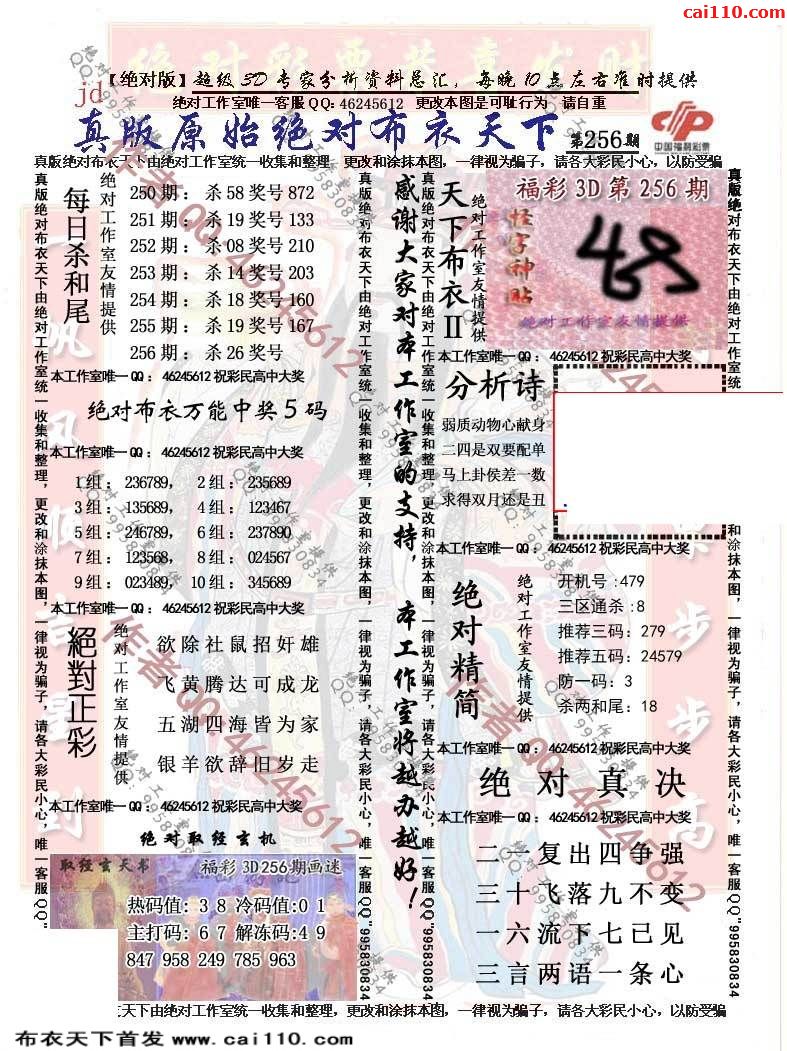 cai110.com
【绝对版】超级3D专家分析资料总汇，每晚10点左右准时提供
jd
绝对工作室唯一客服QQ:46245612 更改本图是可耻行为 请自重
真版原始绝对布衣天下 第256期
中国福利彩票
真版绝对布衣天下由绝对工作室统一收集和整理，更改和涂抹本图，一律视为骗子，请各大彩民小心，以防受骗
每日杀和尾
绝对工作室友情提供
250期：杀58奖号872
251期：杀19奖号133
252期：杀08奖号210
253期：杀14奖号203
254期：杀18奖号160
255期：杀19奖号167
256期：杀26奖号
本工作室唯一QQ：46245612祝彩民高中大奖
绝对布衣万能中奖5码
本工作室唯一QQ：46245612祝彩民高中大奖
1组：236789， 2组：235689
3组：135689， 4组：123467
5组：246789， 6组：237890
7组：123568， 8组：024567
9组：023489， 10组：345689
本工作室唯一QQ：46245612祝彩民高中大奖
絕對正彩
绝对工作室友情提供
欲除社鼠招奸雄
飞黄腾达可成龙
五湖四海皆为家
银羊欲辞旧岁走
本工作室唯一QQ：46245612祝彩民高中大奖
绝对取经玄机
取经玄天书
福彩3D256期画迷
热码值:38冷码值:01
主打码:67解冻码:49
847 958 249 785 963
感谢大家对本工作室的支持，本工作室将越办越好！
真版绝对布衣天下由绝对工作室统一收集和整理，更改和涂抹本图，一律视为骗子，请各大彩民小心，唯一客服QQ"995830834
天下布衣II
绝对工作室友情提供
福彩3D第256期
怪字神贴
绝对工作室友情提供
本工作室唯一QQ：46245612祝彩民高中大奖
分析诗
弱质动物心献身
二四是双要配单
马上卦侯差一数
求得双月还是丑
本工作室唯一QQ：46245612祝彩民高中大奖
绝对精简
绝对工作室友情提供
开机号:479
三区通杀:8
推荐三码:279
推荐五码:24579
防一码:3
杀两和尾:18
本工作室唯一QQ：46245612祝彩民高中大奖
绝对真决
本工作室唯一QQ：46245612祝彩民高中大奖
二一复出四争强
三十飞落九不变
一六流下七已见
三言两语一条心
天下由绝对工作室统一收集和整理，更改和涂抹本图，一律视为骗子，请各大彩民小心，以防受骗
布衣天下首发 www.cai110.com